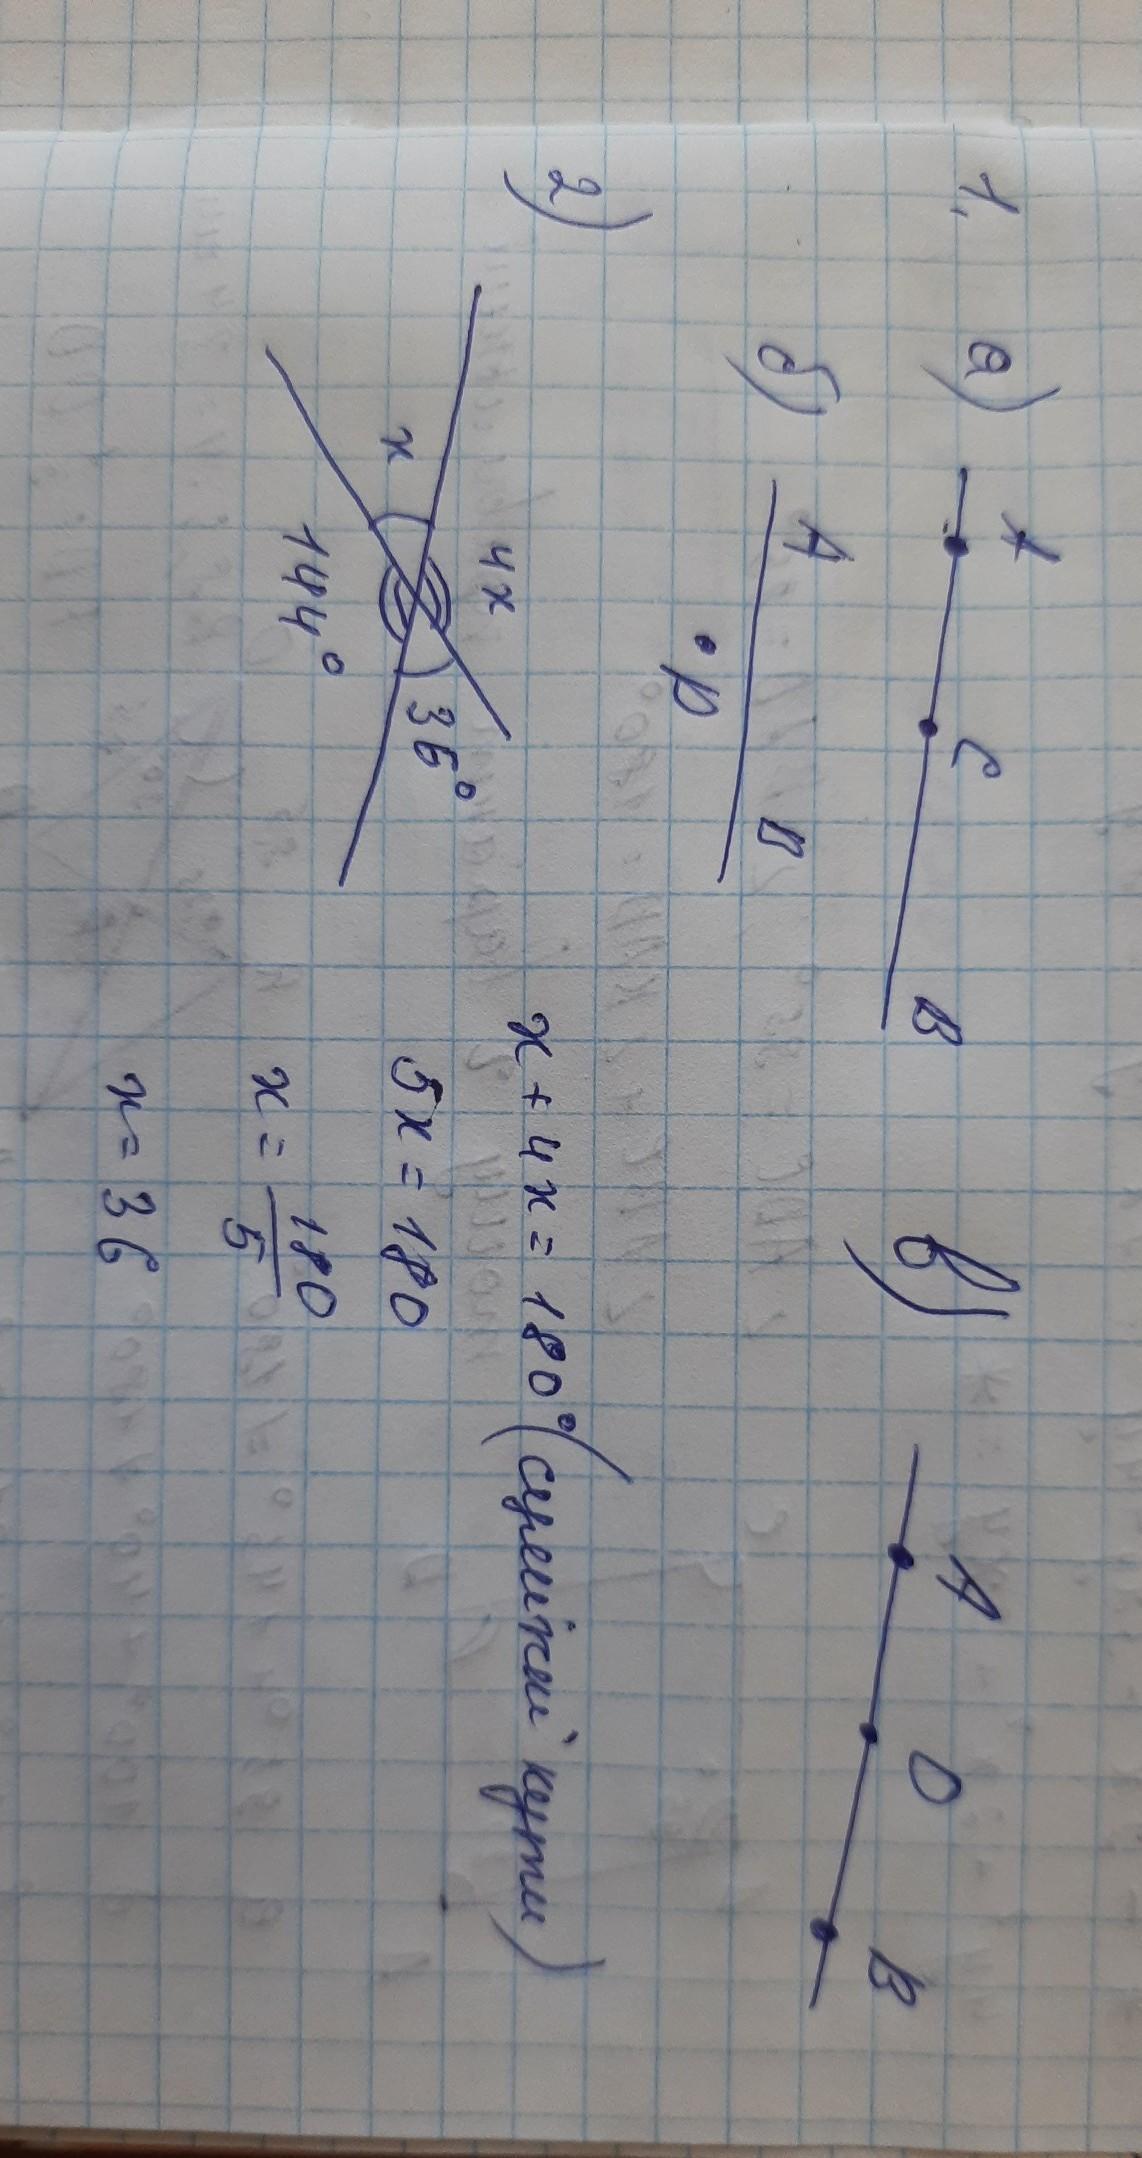 1. а) A C B
в) A O B
б) A B
P
2) 4x
x 36°
144°
x + 4x = 180° (суміжні кути)
5x = 180
x = 180/5
x = 36